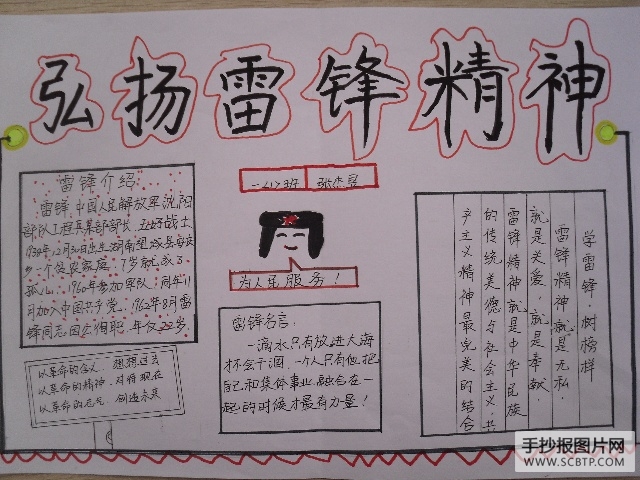 弘扬雷锋精神
一(1)班 张杰昱
雷锋介绍
雷锋,中国人民解放军沈阳
部队工程兵某部班长、五好战士
1939年12月30日出生湖南望城县
一个贫农家庭。7岁就成了
孤儿。1960年参加军队,同年11
月加入中国共产党。1962年8月雷
锋同志因公殉职,年仅22岁。
以革命的
以革命的精神,对待现在
以革命的志气,创造未来
为人民服务!
雷锋名言:
一滴水只有放进大海
才不会干涸,一个人只有他把
自己和集体事业融合在一
起的时候才最有力量!
学雷锋·树榜样
雷锋精神就是无私·
就是关爱·就是奉献
雷锋精神就是中华民族
的传统美德与社会主义·共
产主义精神最完美的结合
手抄报图片网
WWW.SCBTP.COM